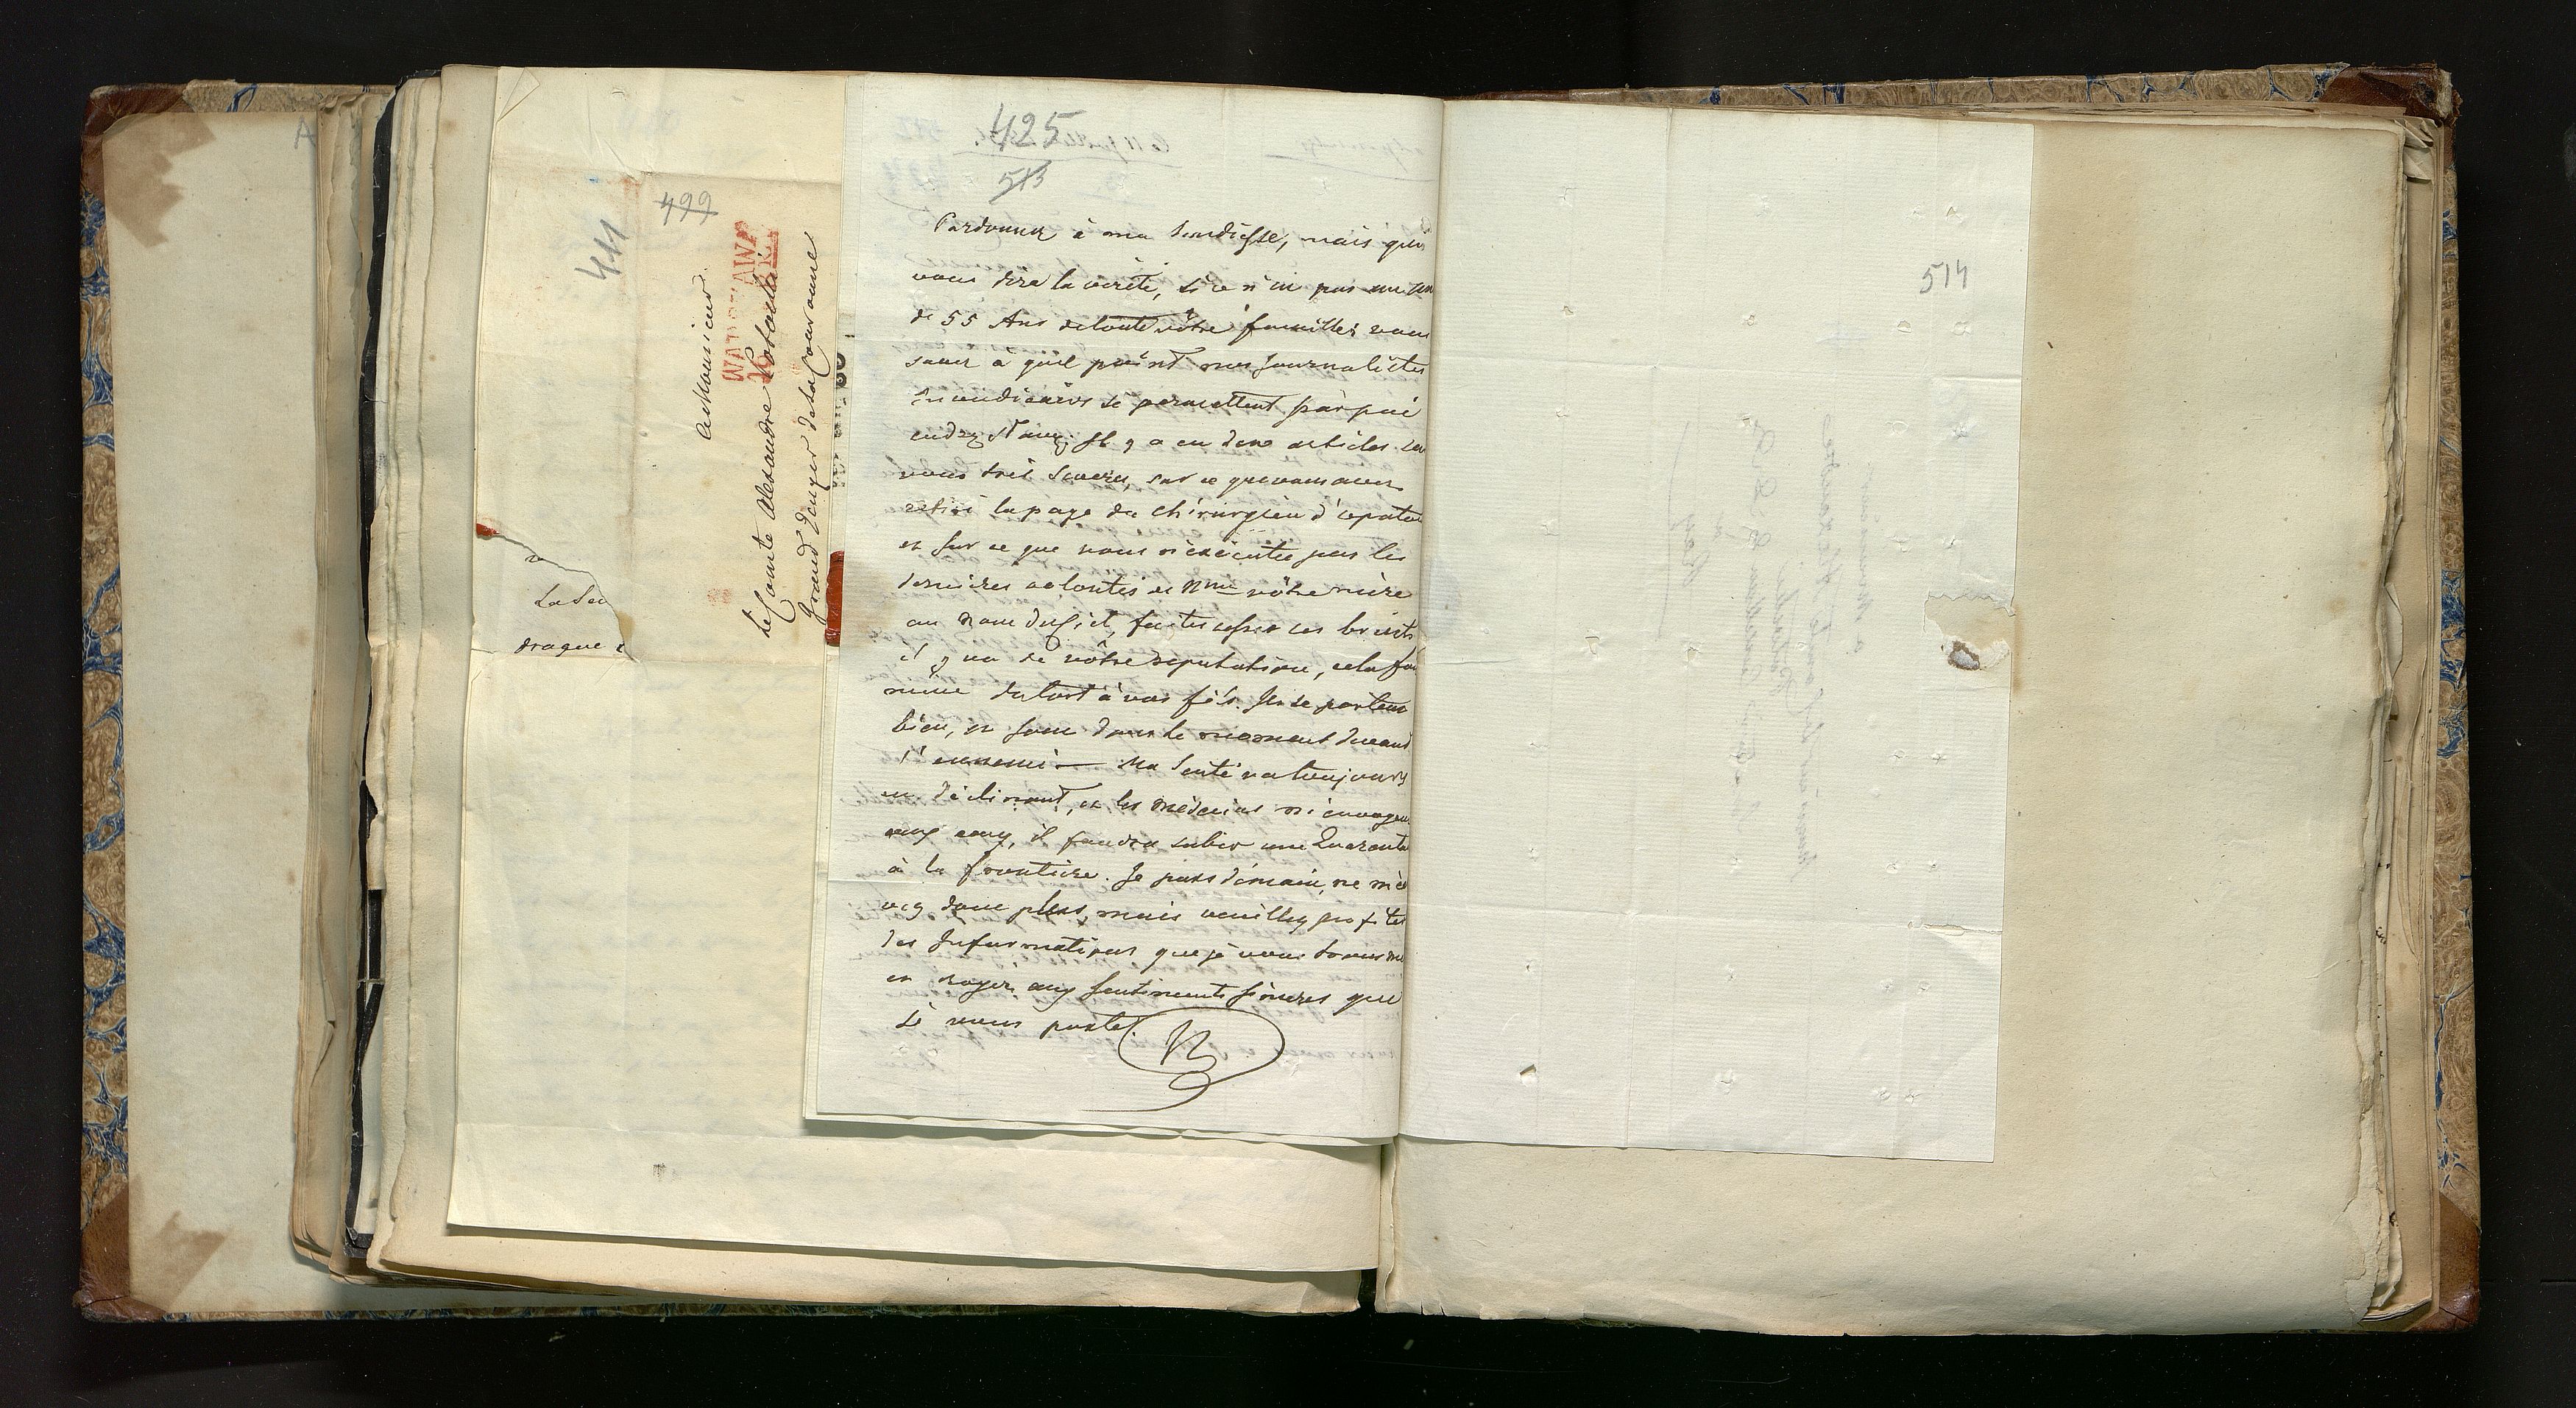 499
411
WARSZAWA
A Monsieur
Le Comte Alexandre Potocki
Grand Ecuyer de la Couronne
La Seu
draque
425
513
Pardonnez à ma hardiesse, mais qui
vous dira la vérité, si ce n'est pas un
de 55 Ans de toute vôtre famille; vous
savez à quel point nos journalistes
incendiaires se permettent
Il y a eu deux articles sur
vous très severes, sur ce que vous avez
retiré la paye du chirurgien
et sur ce que vous n'executez pas les
dernieres volontés de Mme vôtre mère
au nom du Ciel, faites cesser ces bruits
il y va de vôtre reputation, cela fait
même du tort à vos fils. Ils se portent
bien, et sont dans le moment devant
l'ennemi — Ma Santé va toujours
en déclinant, et les médecins m'envoyent
aux eaux, il faudra subir une Quaranta
à la frontière. Je pars demain, ne m'é
vez donc plus, mais veuillez profiter
des Informations que je vous
et croyez aux sentiments sincères que
je vous porte.
514